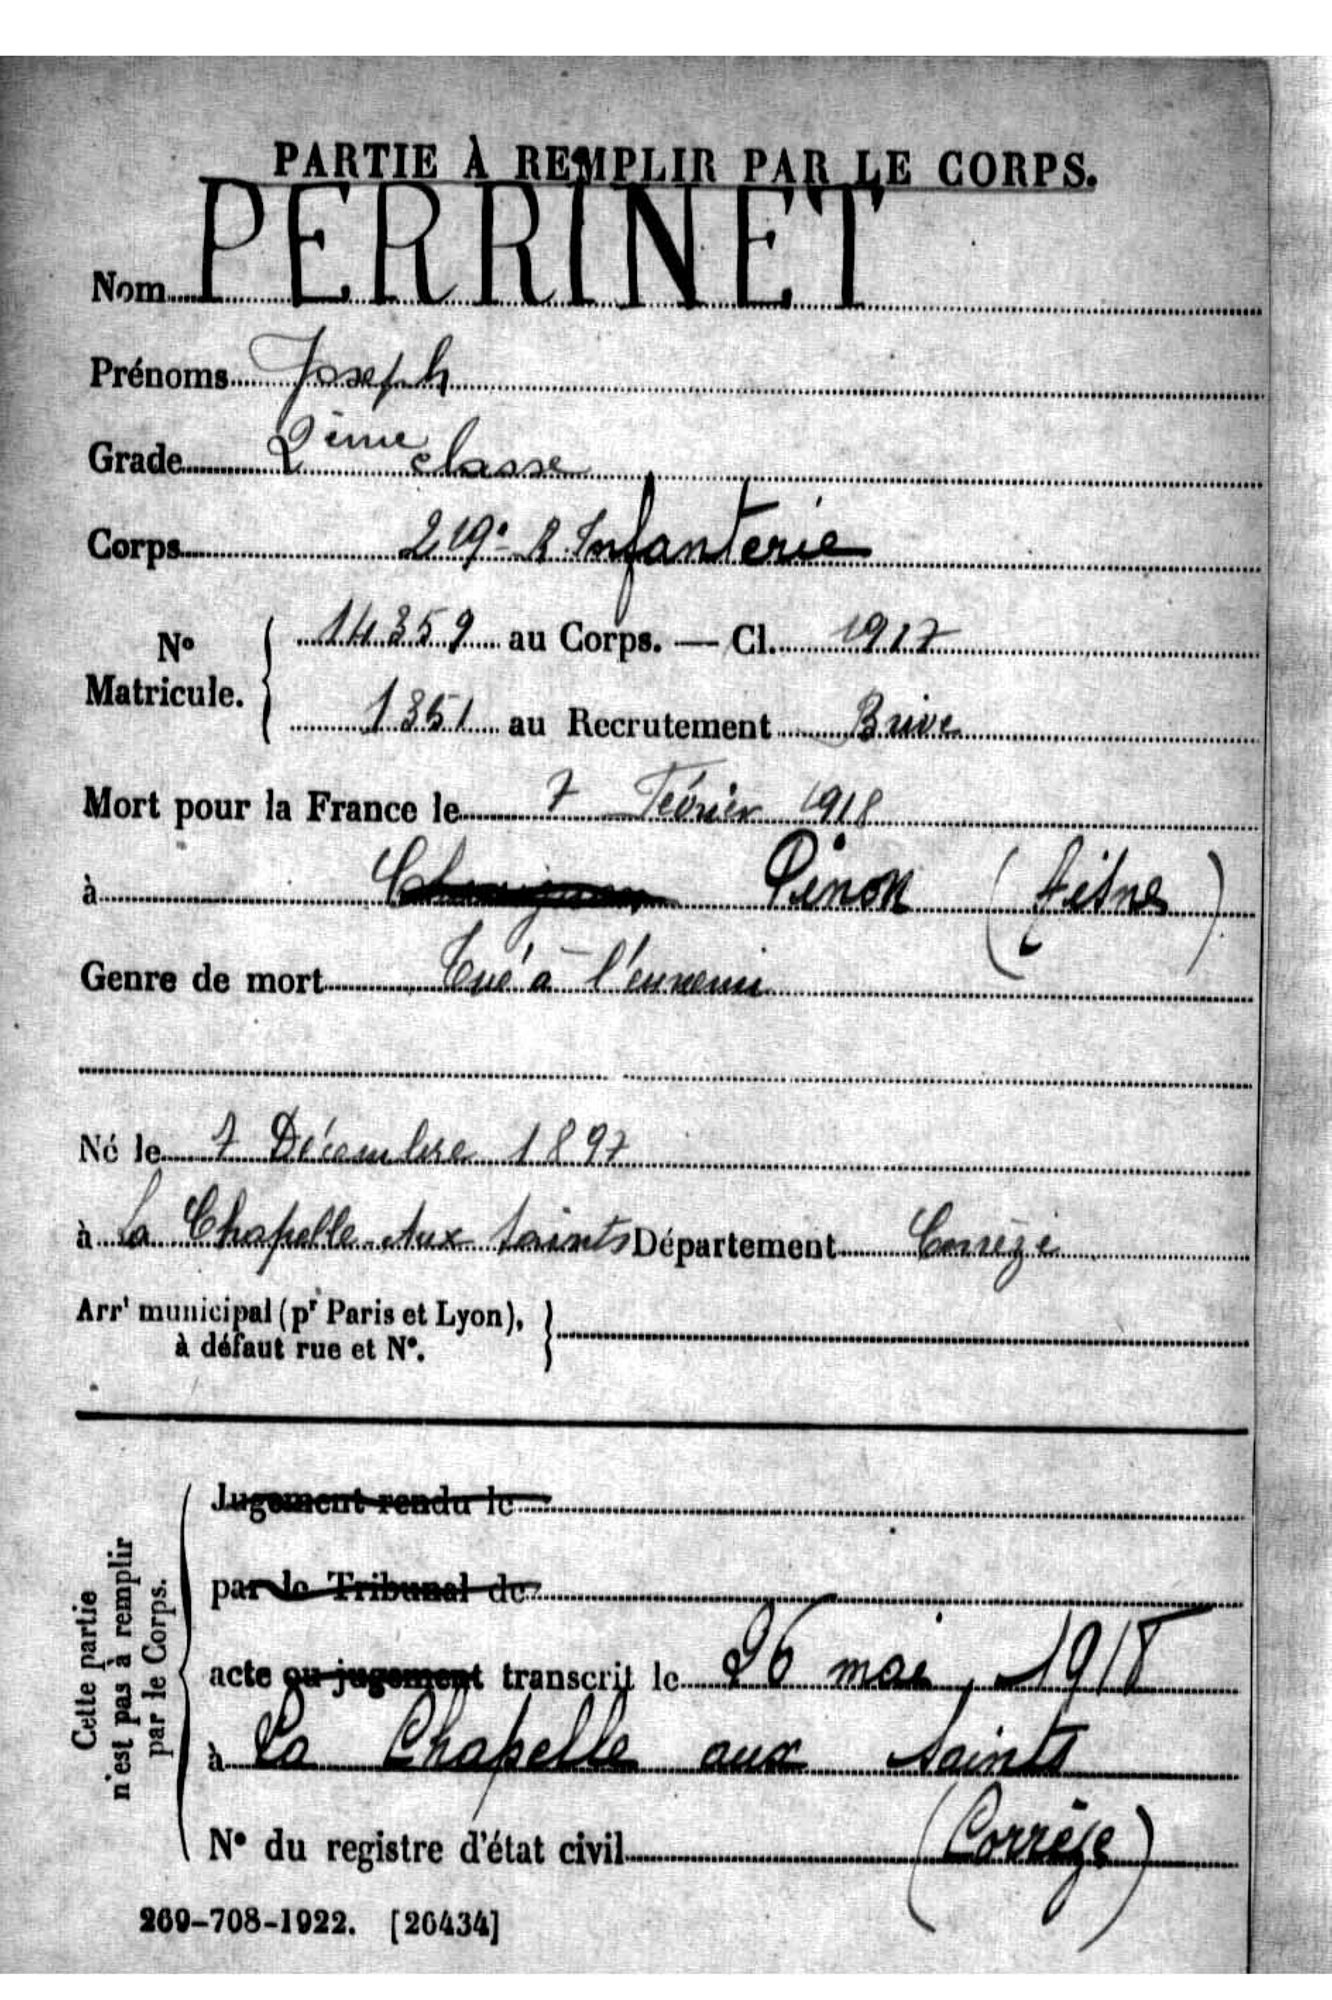 PARTIE À REMPLIR PAR LE CORPS.
Nom PERRINET
Prénoms Joseph
Grade 2ème classe
Corps 219e R Infanterie
No Matricule. { 14359 au Corps. — Cl. 1917
1351 au Recrutement Brive
Mort pour la France le 7 Février 1918
à Pinon (Aisne)
Genre de mort Tué à l'ennemi
Né le 7 Décembre 1897
à La Chapelle Aux Saints Département Corrèze
Arrt municipal (pr Paris et Lyon), }
à défaut rue et N°.
Cette partie
n'est pas à remplir
par le Corps.
Jugement rendu le
par le Tribunal de
acte ou jugement transcrit le 26 mai 1918
à La Chapelle aux Saints
N° du registre d'état civil (Corrèze)
269-708-1922. [26434]